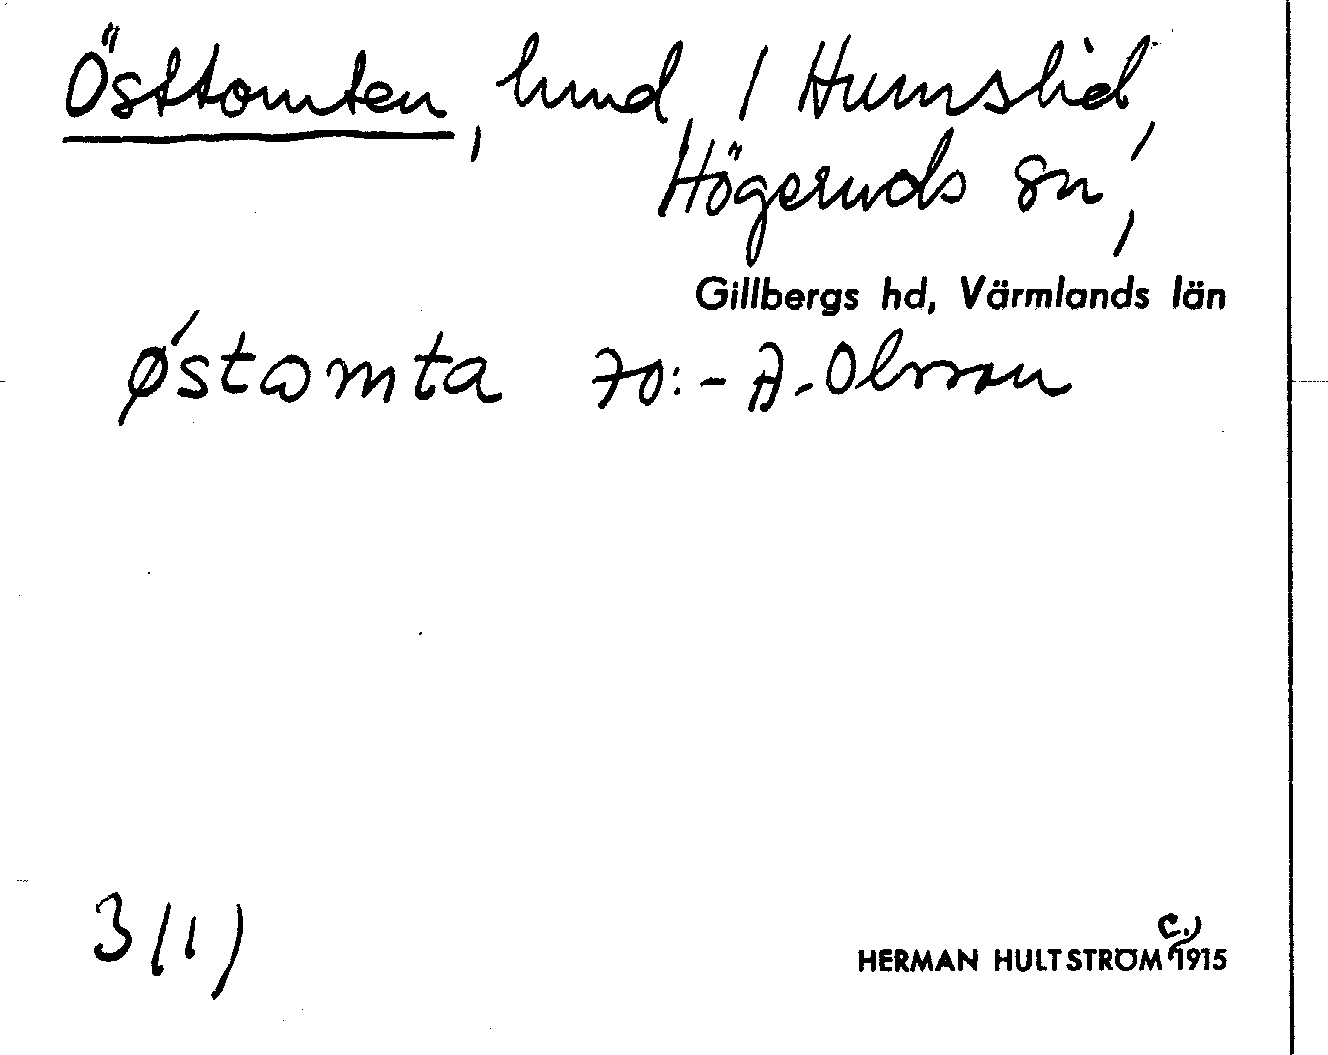 Östtomten, lund, / Humslid,
Högeruds sn,
Gillbergs hd, Värmlands län
ǿstɷmta 70:- A. Olsson
3 (1)
HERMAN HULTSTRÖM c.) 1915